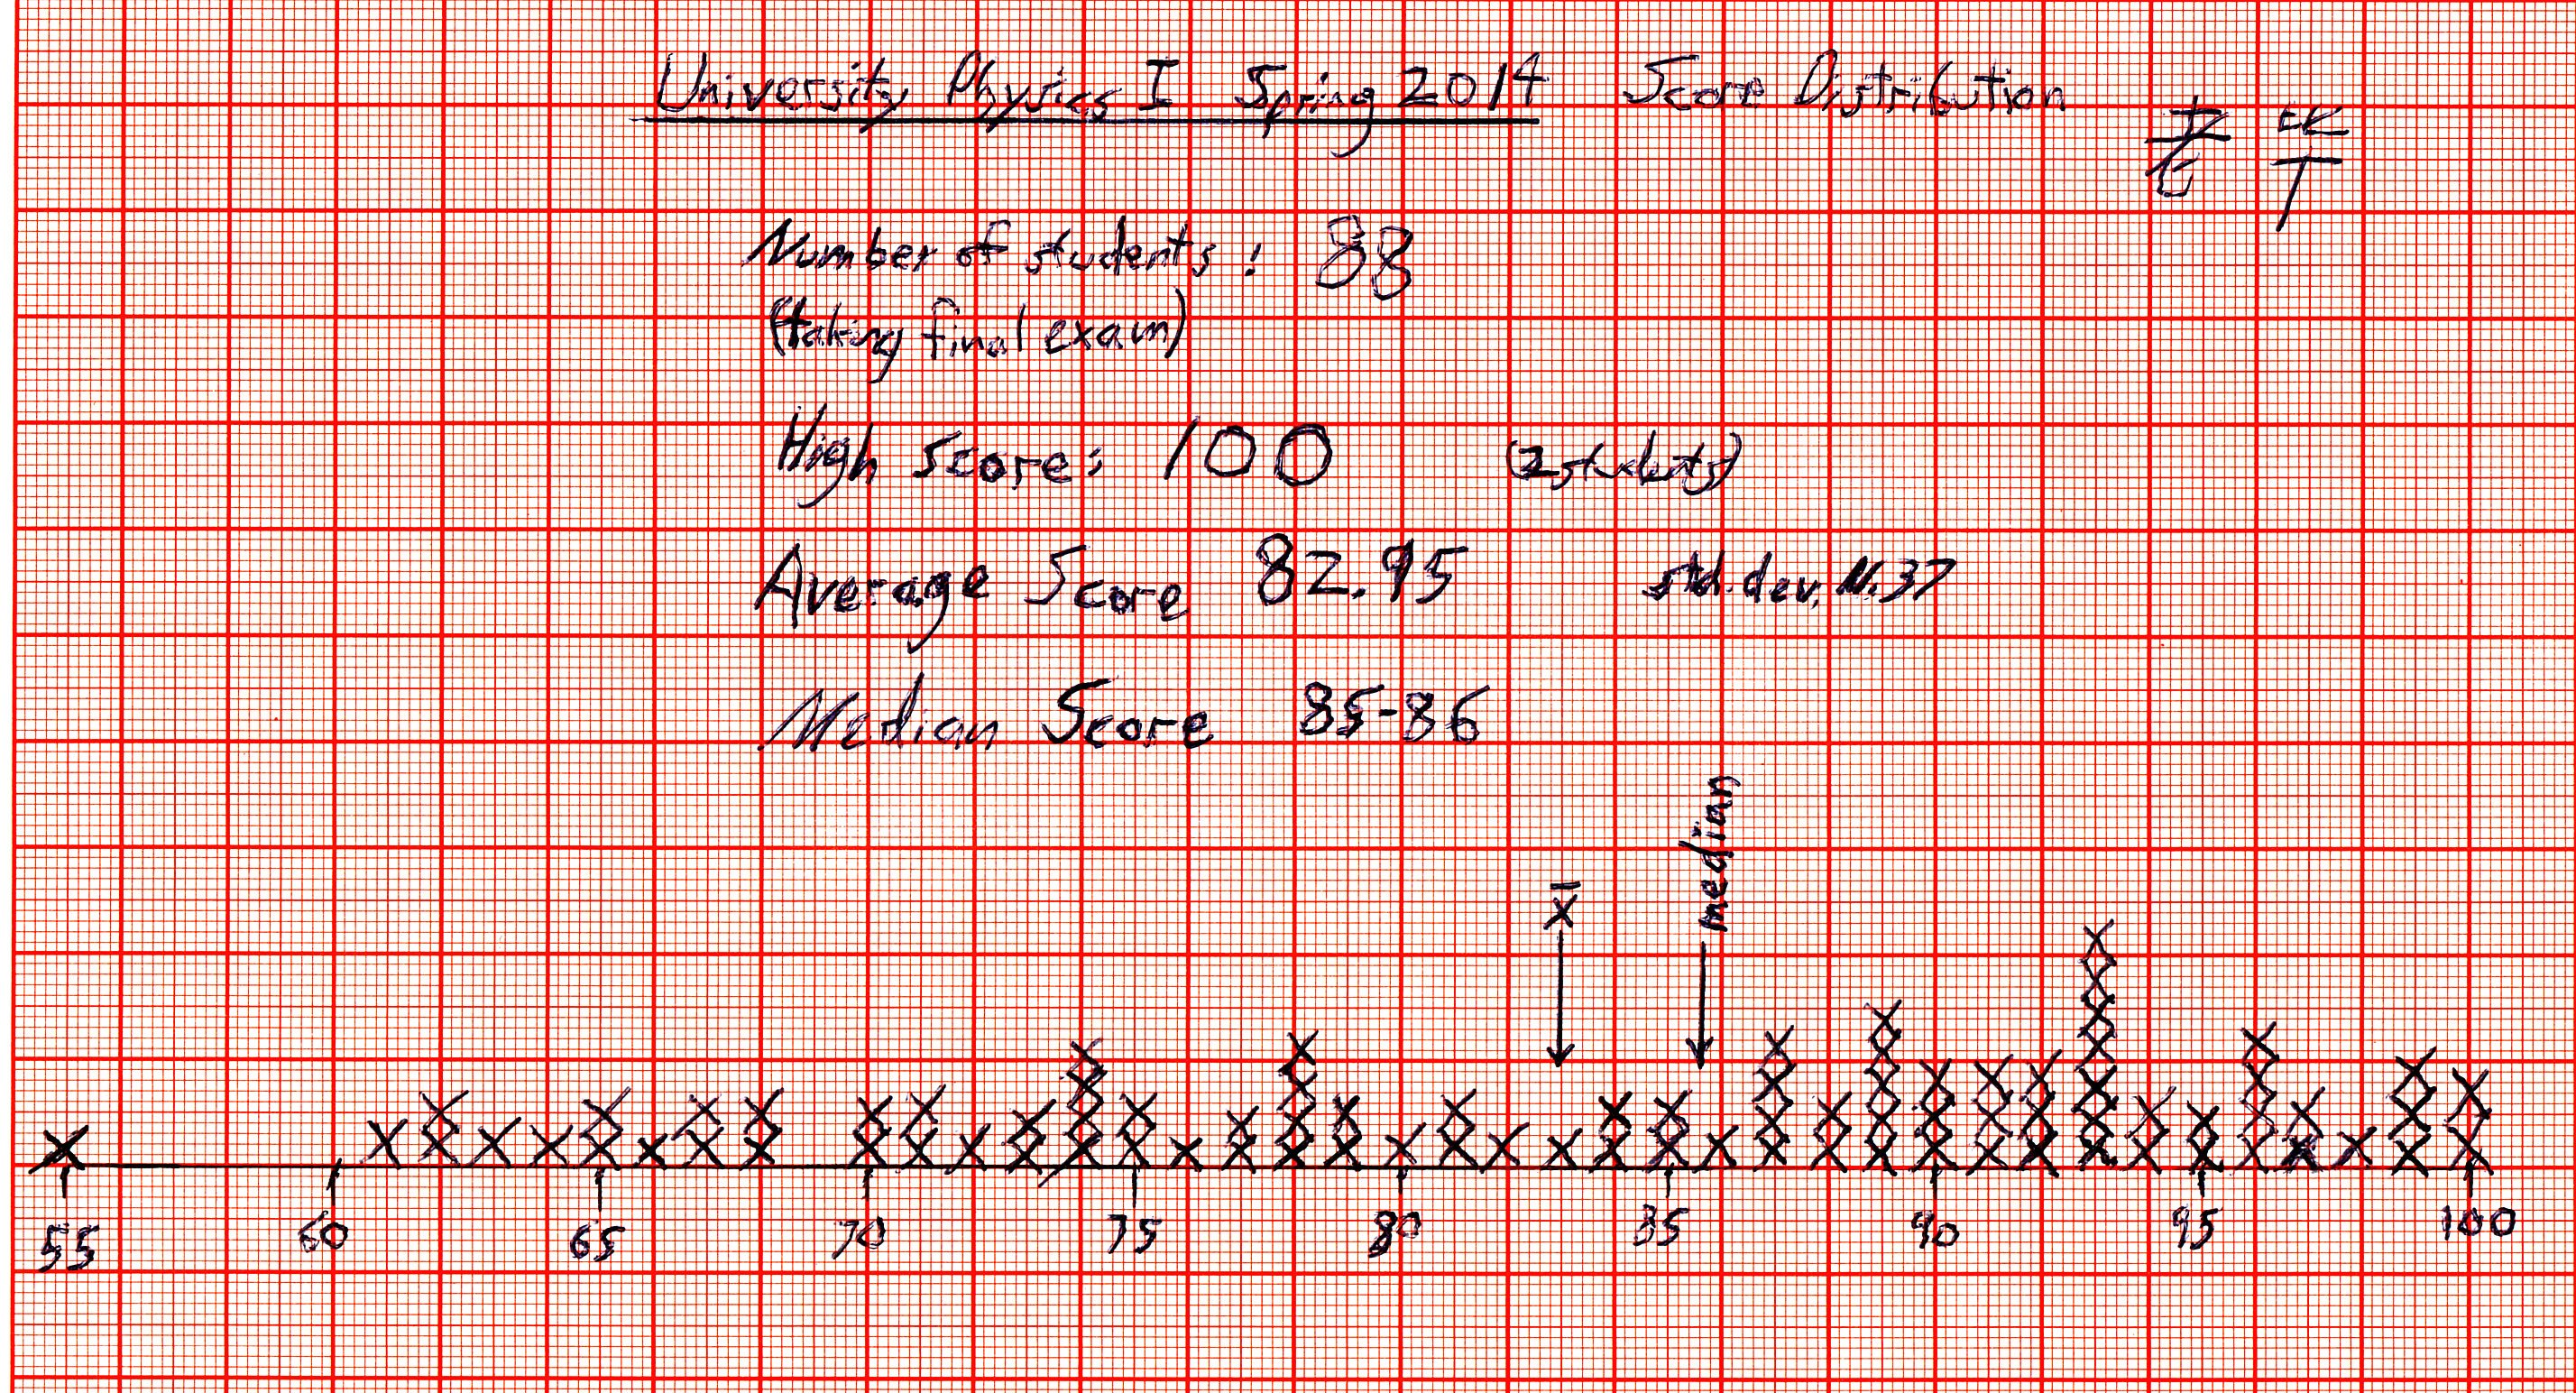 University Physics I Spring 2014 Score Distribution
Number of students: 88
(taking final exam)
High Score: 100 (2 students)
Average Score 82.95 std. dev. 11.37
Median Score 85-86
median
x̄
55 60 65 70 75 80 85 90 95 100